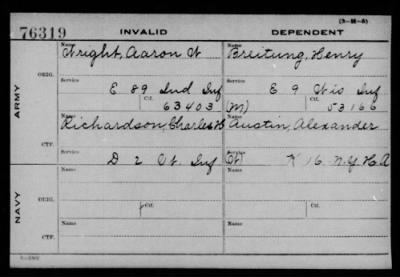 (3-M-5)
76319 INVALID DEPENDENT
Name Name
ORIG. Wright, Aaron W Breitung, Henry
Service Service
E 89 Ind Inf E 9 Wis Inf
Ctf. Ctf.
63403 (M) 53166
ARMY
Name Name
CTF. Richardson, Charles H Austin, Alexander
Service Service
D 2 Vt Inf K 16 N.Y. H.A
Name Name
ORIG.
Service Ctf. Service Ctf.
NAVY
Name Name
CTF.